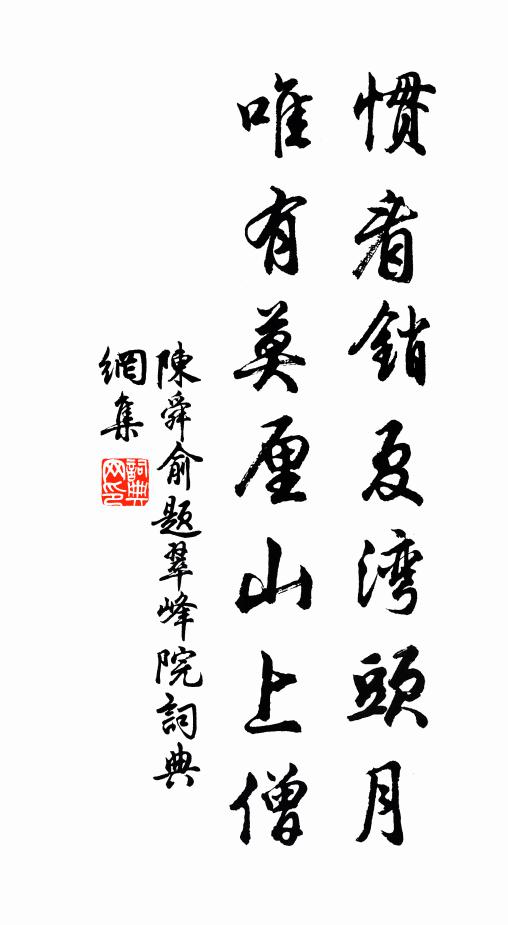 慣看銷夏湾頭月
唯有莫厘山上僧
陳舜俞题翠峰院詞典
網集
詞典網印